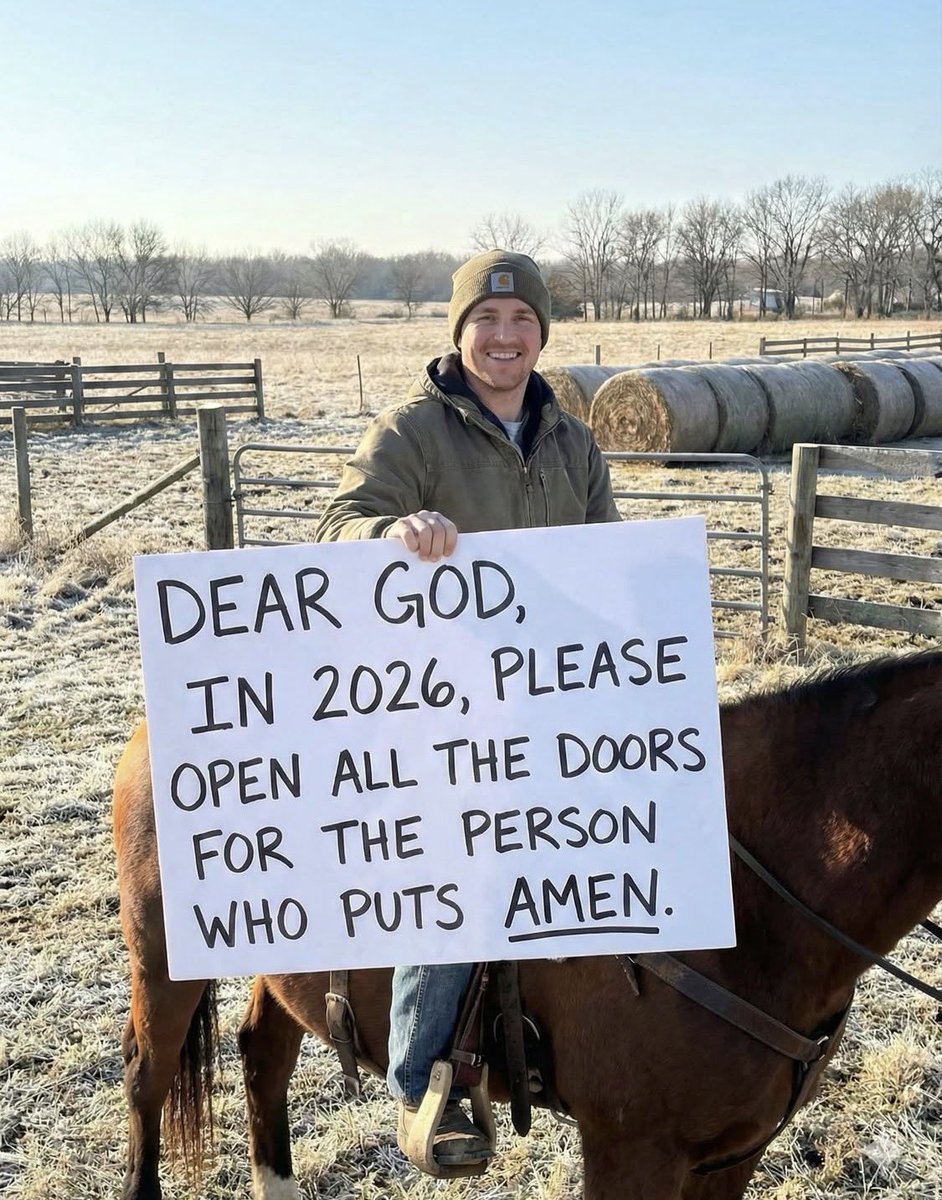 DEAR GOD,
IN 2026, PLEASE
OPEN ALL THE DOORS
FOR THE PERSON
WHO PUTS AMEN.